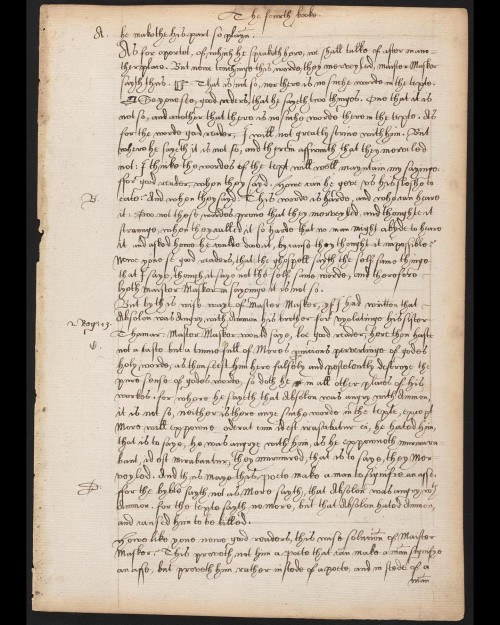 The fourth booke
A. he makethe his part so playn.
As for oportet, of which he speaketh here, we shall talke of after in ano-
ther place. But nowe touchinge this worde, they merveyled, Maister Masker
sayth thus. That is not so, nor there is no suche worde in the texte.
Go ye me se, good reders, that he sayth two thinges. One that it is
not so, and another that there is no suche worde there in the texte. As
for the worde good reader, I will not greatly strive with him. But
where he sayth it is not so, and therein affirmeth that they merveyled
not: I thinke the wordes of the text, will well mayntain my sayinge.
For good reader, when they sayd. Howe can he geve us his fleshe to
B. eate? And when they sayd. This worde is harde, and who can heare
it: Doo not these wordes prove that they merveyled, and thought it
straunge, when they called it so harde that no man might abyde to heare
it and asked howe he coulde doo it, by cause they thought it impossible?
Nowe you se good readers, that the ghospell sayth the selfe same thinge
that I saye, though it saye not the selfe same worde, and therefore
lyeth Maister Masker in sayenge it is not so.
But by this wise waye of Master Masker, yf I had written that
Absolon was angry, with Ammon his brother for violatinge his sister
2. Reg. 13. Thamar: Master Masker would saye, lo good reader, here thou haste
C. not a taste but a tunne full of Mores pernicious pervertinge of godes
holy worde, as thou seest him here falsely and pestilently destroye the
pure sense of godes worde, so doth he in all other places of his
workes. For where he sayeth that Absolon was angry with Ammon,
it is not so, neither is there anye suche worde in the texte, except
More will expowne oderat eum id est irascebatur ei, he hated him,
that is to saye, he was angrye with him, as he expowneth murmura-
bant, id est mirabantur, they murmured, that is to saye, they mer-
veyled. And thus maye this poete make a man to signifie an asse.
D. For the byble sayth, not as More sayth, that Absolon was angry, with
Ammon. for the texte sayth no more, but that Absolon hated Ammon,
and caused him to be killed.
Howe like you nowe good readers, this wise solucion of Maister
Masker. This proveth not him a poete that can make a man signifye
an asse, but proveth him rather in stede of a poete, and in stede of a
man